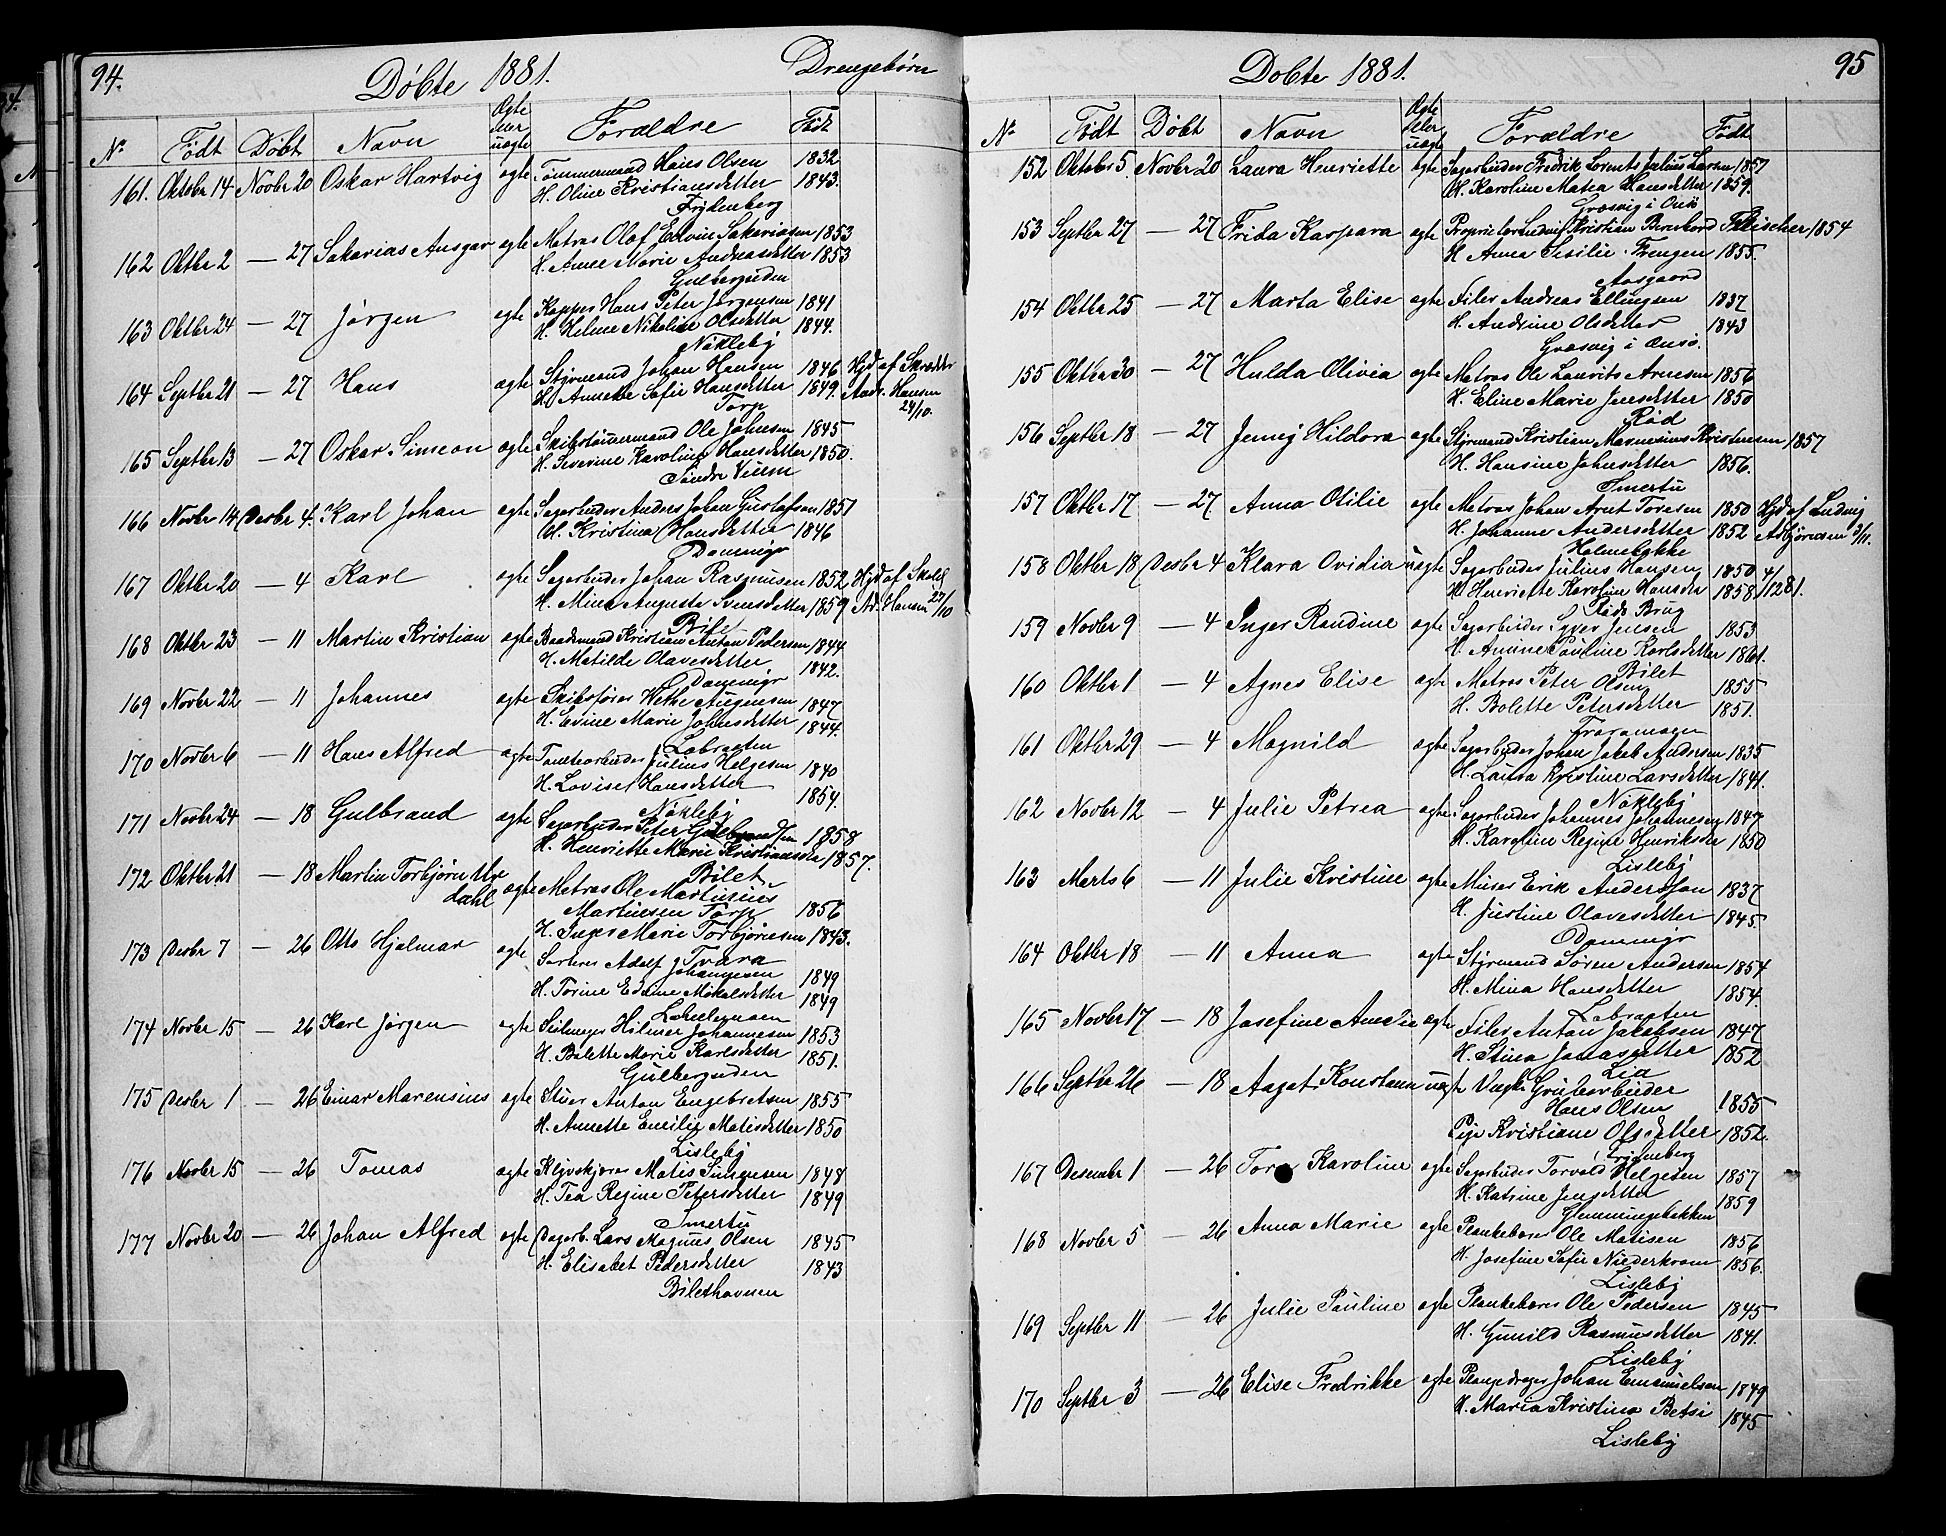 94.
Döbte 1881.
Drengebörn
No Födt Döbt Navn Ægte eller uægte Forældre Födt
161. Oktobr 14 Novbr 20 Oskar Hartvig ægte Tömmermand Hans Olsen 1832
H. Oline Kristiansdetter 1843.
Frydenberg
162 Oktbr 2 — 27 Sakarias Ansgar ægte Matros Olaf Edvin Sakariasen 1853
H. Anne Marie Andreasdetter 1853
Gulbergsiden
163 Oktbr 24 — 27 Jörgen ægte Kopper Hans Peter Jörgensen 1841
H. Helene Nikoline Olsdetter 1844.
Nökleby
164 Septbr 21 — 27 Hans ægte Styrmand Johan Hansen 1846 Hjd af Skrædder
H. Annette Sofie Hansdetter 1849. Andr. Hansen
Torp 24/10.
165 Septbr 13 — 27 Oskar Simeon ægte Skibstömmermand Ole Johnsen 1845
H. Severine Karoline Hansdetter 1850.
Söndre Viem
166 Novbr 14 Desbr 4. Karl Johan ægte Sagarbeider Anders Johan Gustafson 1851
H. Kristina Hansdetter 1846
Dammyr
167 Oktbr 20 — 4 Karl ægte Sagarbeider Johan Rasmusen 1852. Hjd af Skolel
H. Mina Auguste Svensdetter 1859 Ad. Hansen 27/10
Bilet
168 Oktbr 23 — 11 Martin Kristian ægte Baadsmand Kristian Anton Pedersen 1844
H. Matilde Olavesdetter 1842.
Dammyr
169 Novbr 22 — 11 Johannes ægte Skibsförer Augensen 1847
H. Evine Marie Johnsdetter 1844.
Labraaten
170 Novbr 6 — 11 Hans Alfred ægte Tomtearbeider Julius Helgesen 1840
H. Lovise Hansdetter 1854.
Nökleby
171 Novbr 24 — 18 Gulbrand ægte Sagarbeider Peter Gulbrandsen 1858
H. Henriette Marie Kristiansdtr 1857.
Bilet
172 Oktbr 21 — 18 Martin Torbjörn
dahl ægte Matros Ole Martinius
Martinsen Torp 1856
H. Inger Marie Torbjörnsen 1843.
Tvara
173 Desbr 7 — 26 Otto Hjalmar ægte Sorterer Adolf Johannesen 1849
H. Torine Edvine Mikalsdetter 1849
174 Novbr 15 — 26 Karl Jörgen ægte Seilmager Hilmar Johannesen 1853
H. Bolette Marie Karlsdetter 1851.
Gulbergsiden
175 Desbr 1 — 26 Einar Marensius ægte Stuer Anton Engebretsen 1855
H. Annette Emilie Matisdetter 1850
Lisleby
176 Novbr 15 — 26 Tomas ægte Klövskjærer Matis Simensen 1848
H. Tea Regine Petersdetter 1849
Smertu
177 Novbr 20 — 26 Johan Alfred ægte Dagarb. Lars Magnus Olsen 1845
H. Elisabet Pedersdetter 1843
Bilethavnen
95
Döbte 1881.
No Födt Döbt Navn Ægte eller uægte Forældre Födt
152 Oktober 5. Novbr 20 Laura Henriette ægte Sagarbeider Fredrik Lorents Julius Larsen 1857
H. Karoline Matea Hansdetter 1859.
Græsvig i Onsö
153 Septbr 27 — 27 Frida Kaspara ægte Proprietær Ludvig Kristian Bernhard Fleischer 1854
H. Anna Sesilie Frengen 1855.
Aasgaard
154 Oktbr 25 — 27 Marta Elise ægte Filer Andreas Ellingsen 1837
H. Andrine Olsdetter 1843
Græsvig i Onsö.
155 Oktbr 30 — 27 Hulda Olivia ægte Matros Ole Laurits Arnesen 1856
H. Eline Marie Jensdetter 1850
Röd
156 Septbr 18 — 27 Jenny Hildora ægte Styrmand Kristian Marensius Kristensen 1857
H. Hansine Johnsdetter 1856.
Smertu
157 Oktbr 17 — 27 Anna Otilie ægte Matros Johan Arnt Toresen 1850 Hjd af Ludvig
H. Johanne Andersdetter 1852 Asbjörnsen 3/11.
Holmebakke
158 Oktbr 18 Desbr 4 Klara Ovidia uægte Sagarbeider Julius Hansen 1850 4/
H. Henriette Karoline Hansdtr 1858 1281.
Röds Brug
159 Novbr 9 — 4 Inger Randine ægte Sagarbeider Syver Jensen 1853
H. Amine Pauline Karlsdetter 1861.
Bilet
160 Oktbr 1 — 4 Agnes Elise ægte Matros Peter Olsen 1855
H. Bolette Petersdetter 1851.
161 Oktbr 29 — 4 Magnild ægte Sagarbeider Johan Jakob Andersen 1835
H. Laura Kristine Larsdetter 1841.
Nökleby
162 Novbr 12 — 4 Julie Petrea ægte Sagarbeider Johannes Johannesen 1847
H. Karoline Regine Henriksdtr 1850
Lisleby
163 Marts 6 — 11 Julie Kristine ægte Murer Erik Anderssson 1837
H. Justine Olavesdetter 1845.
Dammyr
164 Oktbr 18 — 11 Anna ægte Styrmand Sören Andersen 1854
H. Mina Hansdetter 1854.
Labraaten
165 Novbr 17 — 18 Josefine Amelie ægte Filer Anton Jakobsen 1847
H. Stina Jonasdetter 1852
Lia
166 Septbr 26 — 18 Aagot Konstanse uægt Ungk. Grubearbeider
Hans Olsen 1855
Pige Kristiane Olsdetter 1852.
Frydenberg
167 Desember 1 — 26 Tora Karoline ægte Sagarbeider Torvald Helgesen 1857
H. Katrine Jensdetter 1859
Glemmingebakken
168 Novbr 5 — 26 Anna Marie ægte Plankebærer Ole Matisen 1856
H. Josefine Sofie Niederkrom 1856.
Lisleby
169 Septbr 11 — 26 Julie Pauline ægte Plankebærer Ole Pedersen 1845
H. Gunild Rasmusdetter 1841.
Lisleby
170 Septbr 3 — 26 Elise Fredrikke ægte Plangedrager Johan Emanuelsen 1849
H. Maria Kristina Betsi 1845
Lisleby